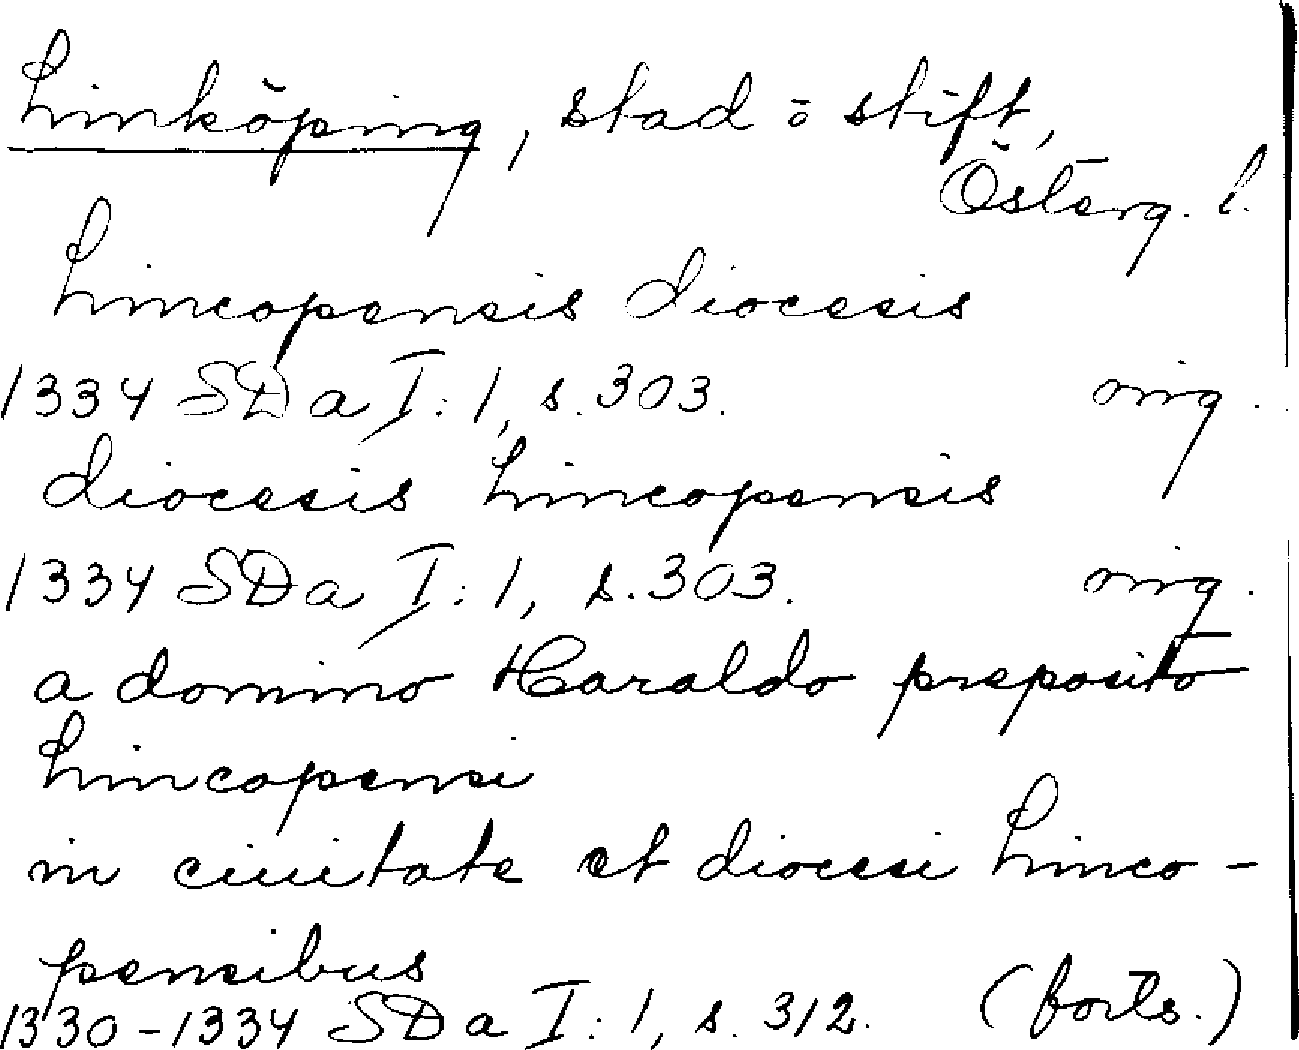 Linköping, stad o stift,
Österg. l.
Lincopensis diocesis
1334 SDa I:1, s.303. orig.
diocesis Lincopensis
1334 SDa I:1, s.303. orig.
a domino Haraldo preposito
Lincopensi
in ciuitate et diocesi Linco-
pensibus
1330-1334 SDa I:1, s.312. (forts.)